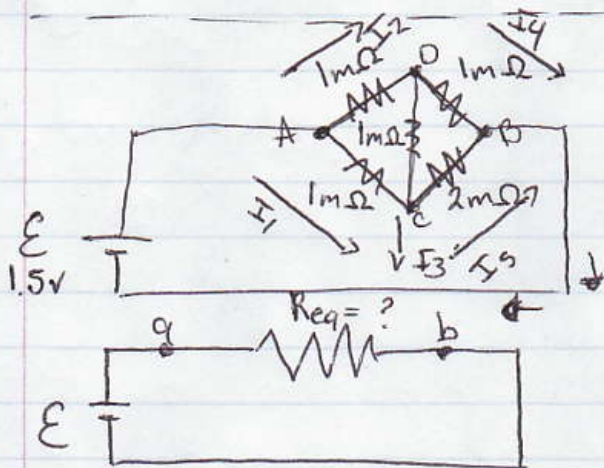 I2 I4
D
1mΩ 1mΩ
A 1mΩ B
1mΩ C 2mΩ
I1 I3 I5
ℰ
1.5v
Req = ?
a b
ℰ